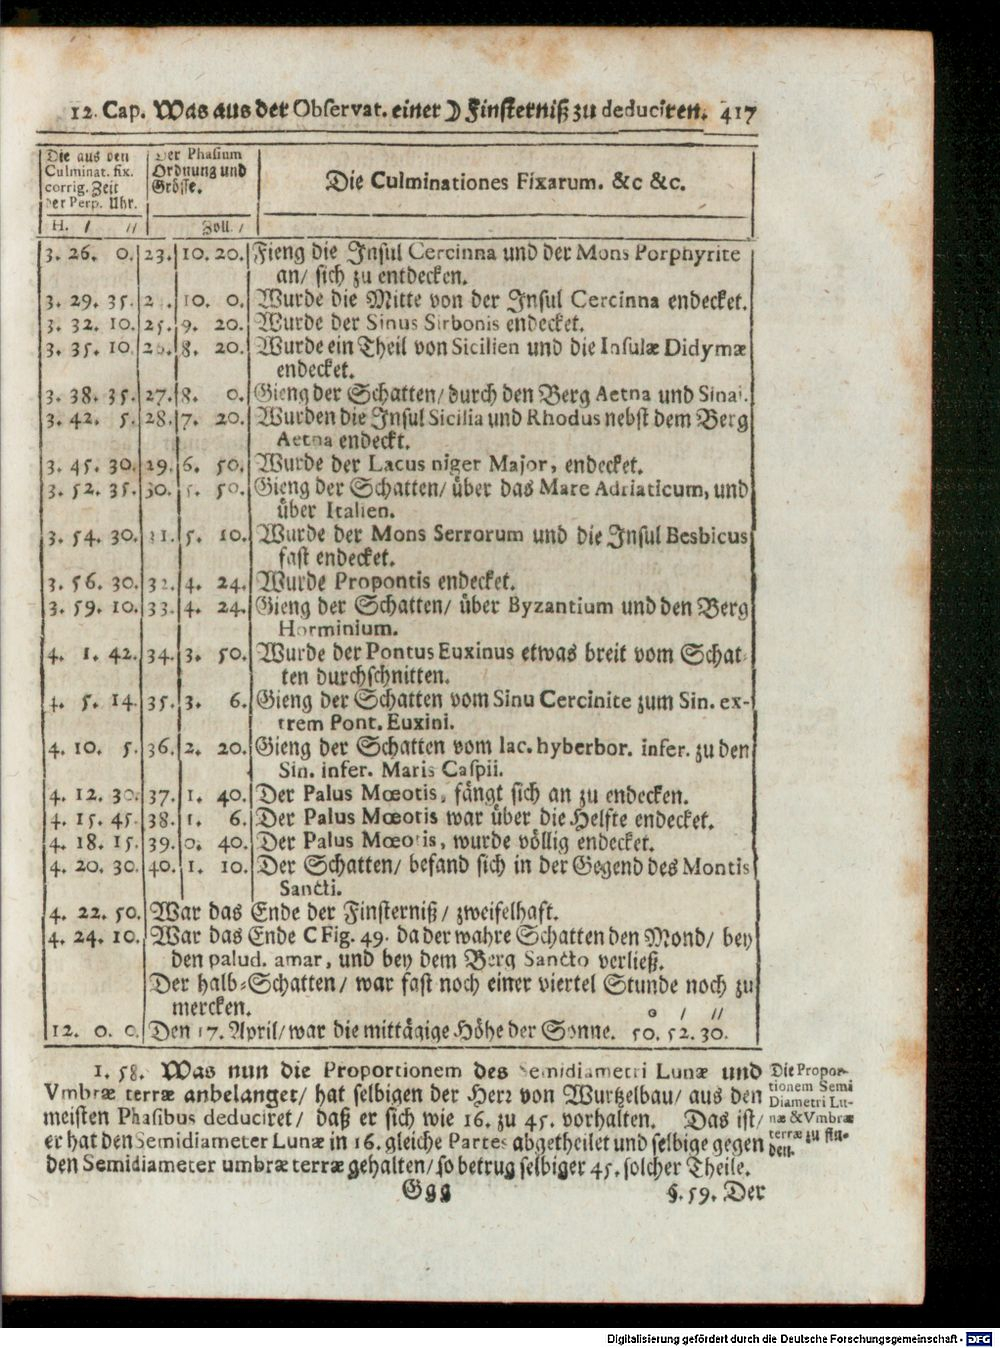 12. Cap. Was aus der Observat. einer ☽ Finsterniß zu deduciren. 417
Die aus den
Culminat. fix.
corrig. Zeit
der Perp. Uhr.
H. / //
Der Phasium
Ordnung und
Grösse.
Zoll. /
Die Culminationes Fixarum. &c &c.
3. 26. 0. 23. 10. 20. Fieng die Insul Cercinna und der Mons Porphyrite
an/ sich zu entdecken.
3. 29. 35. 10. 0. Wurde die Mitte von der Insul Cercinna endecket.
3. 32. 10. 25. 9. 20. Wurde der Sinus Sirbonis endecket.
3. 35. 10. 26. 8. 20. Wurde ein Theil von Sicilien und die Insulæ Didymæ
endecket.
3. 38. 35. 27. 8. 0. Gieng der Schatten/ durch den Berg Aetna und Sinai.
3. 42. 5. 28. 7. 20. Wurden die Insul Sicilia und Rhodus nebst dem Berg
Aetna endeckt.
3. 45. 30. 29. 6. 50. Wurde der Lacus niger Major, endecket.
3. 52. 35. 30. 5. 50. Gieng der Schatten/ über das Mare Adriaticum, und
über Italien.
3. 54. 30. 31. 5. 10. Wurde der Mons Serrorum und die Insul Besbicus
fast endecket.
3. 56. 30. 32. 4. 24. Wurde Propontis endecket.
3. 59. 10. 33. 4. 24. Gieng der Schatten/ über Byzantium und den Berg
Horminium.
4. 1. 42. 34. 3. 50. Wurde der Pontus Euxinus etwas breit vom Schat-
ten durchschnitten.
4. 5. 14. 35. 3. 6. Gieng der Schatten vom Sinu Cercinite zum Sin. ex-
trem Pont. Euxini.
4. 10. 5. 36. 2. 20. Gieng der Schatten vom lac. hyberbor. infer. zu den
Sin. infer. Maris Caspii.
4. 12. 30. 37. 1. 40. Der Palus Mœotis, fängt sich an zu endecken.
4. 15. 45. 38. 1. 6. Der Palus Mœotis war über die Helfte endecket.
4. 18. 15. 39. 0. 40. Der Palus Mœotis, wurde völlig endecket.
4. 20. 30. 40. 1. 10. Der Schatten/ befand sich in der Gegend des Montis
Sancti.
4. 22. 50. War das Ende der Finsterniß/ zweifelhaft.
4. 24. 10. War das Ende C Fig. 49. da der wahre Schatten den Mond/ bey
den palud. amar, und bey dem Berg Sancto verließ.
Der halb-Schatten/ war fast noch einer viertel Stunde noch zu
mercken.
° / //
12. 0. 0. Den 17. April/ war die mittägige Höhe der Sonne. 50. 52. 30.
1. 58. Was nun die Proportionem des Semidiametri Lunæ und
Vmbræ terræ anbelanget/ hat selbigen der Herr von Wurtzelbau/ aus den
meisten Phasibus deduciret/ daß er sich wie 16. zu 45. vorhalten. Das ist/
er hat den Semidiameter Lunæ in 16. gleiche Partes abgetheilet und selbige gegen
den Semidiameter umbræ terræ gehalten/ so betrug selbiger 45. solcher Theile.
Die Propor-
tionem Semi
Diametri Lu-
næ & Vmbræ
terræ zu fin-
den.
Ggg §. 59. Der
Digitalisierung gefördert durch die Deutsche Forschungsgemeinschaft - DFG